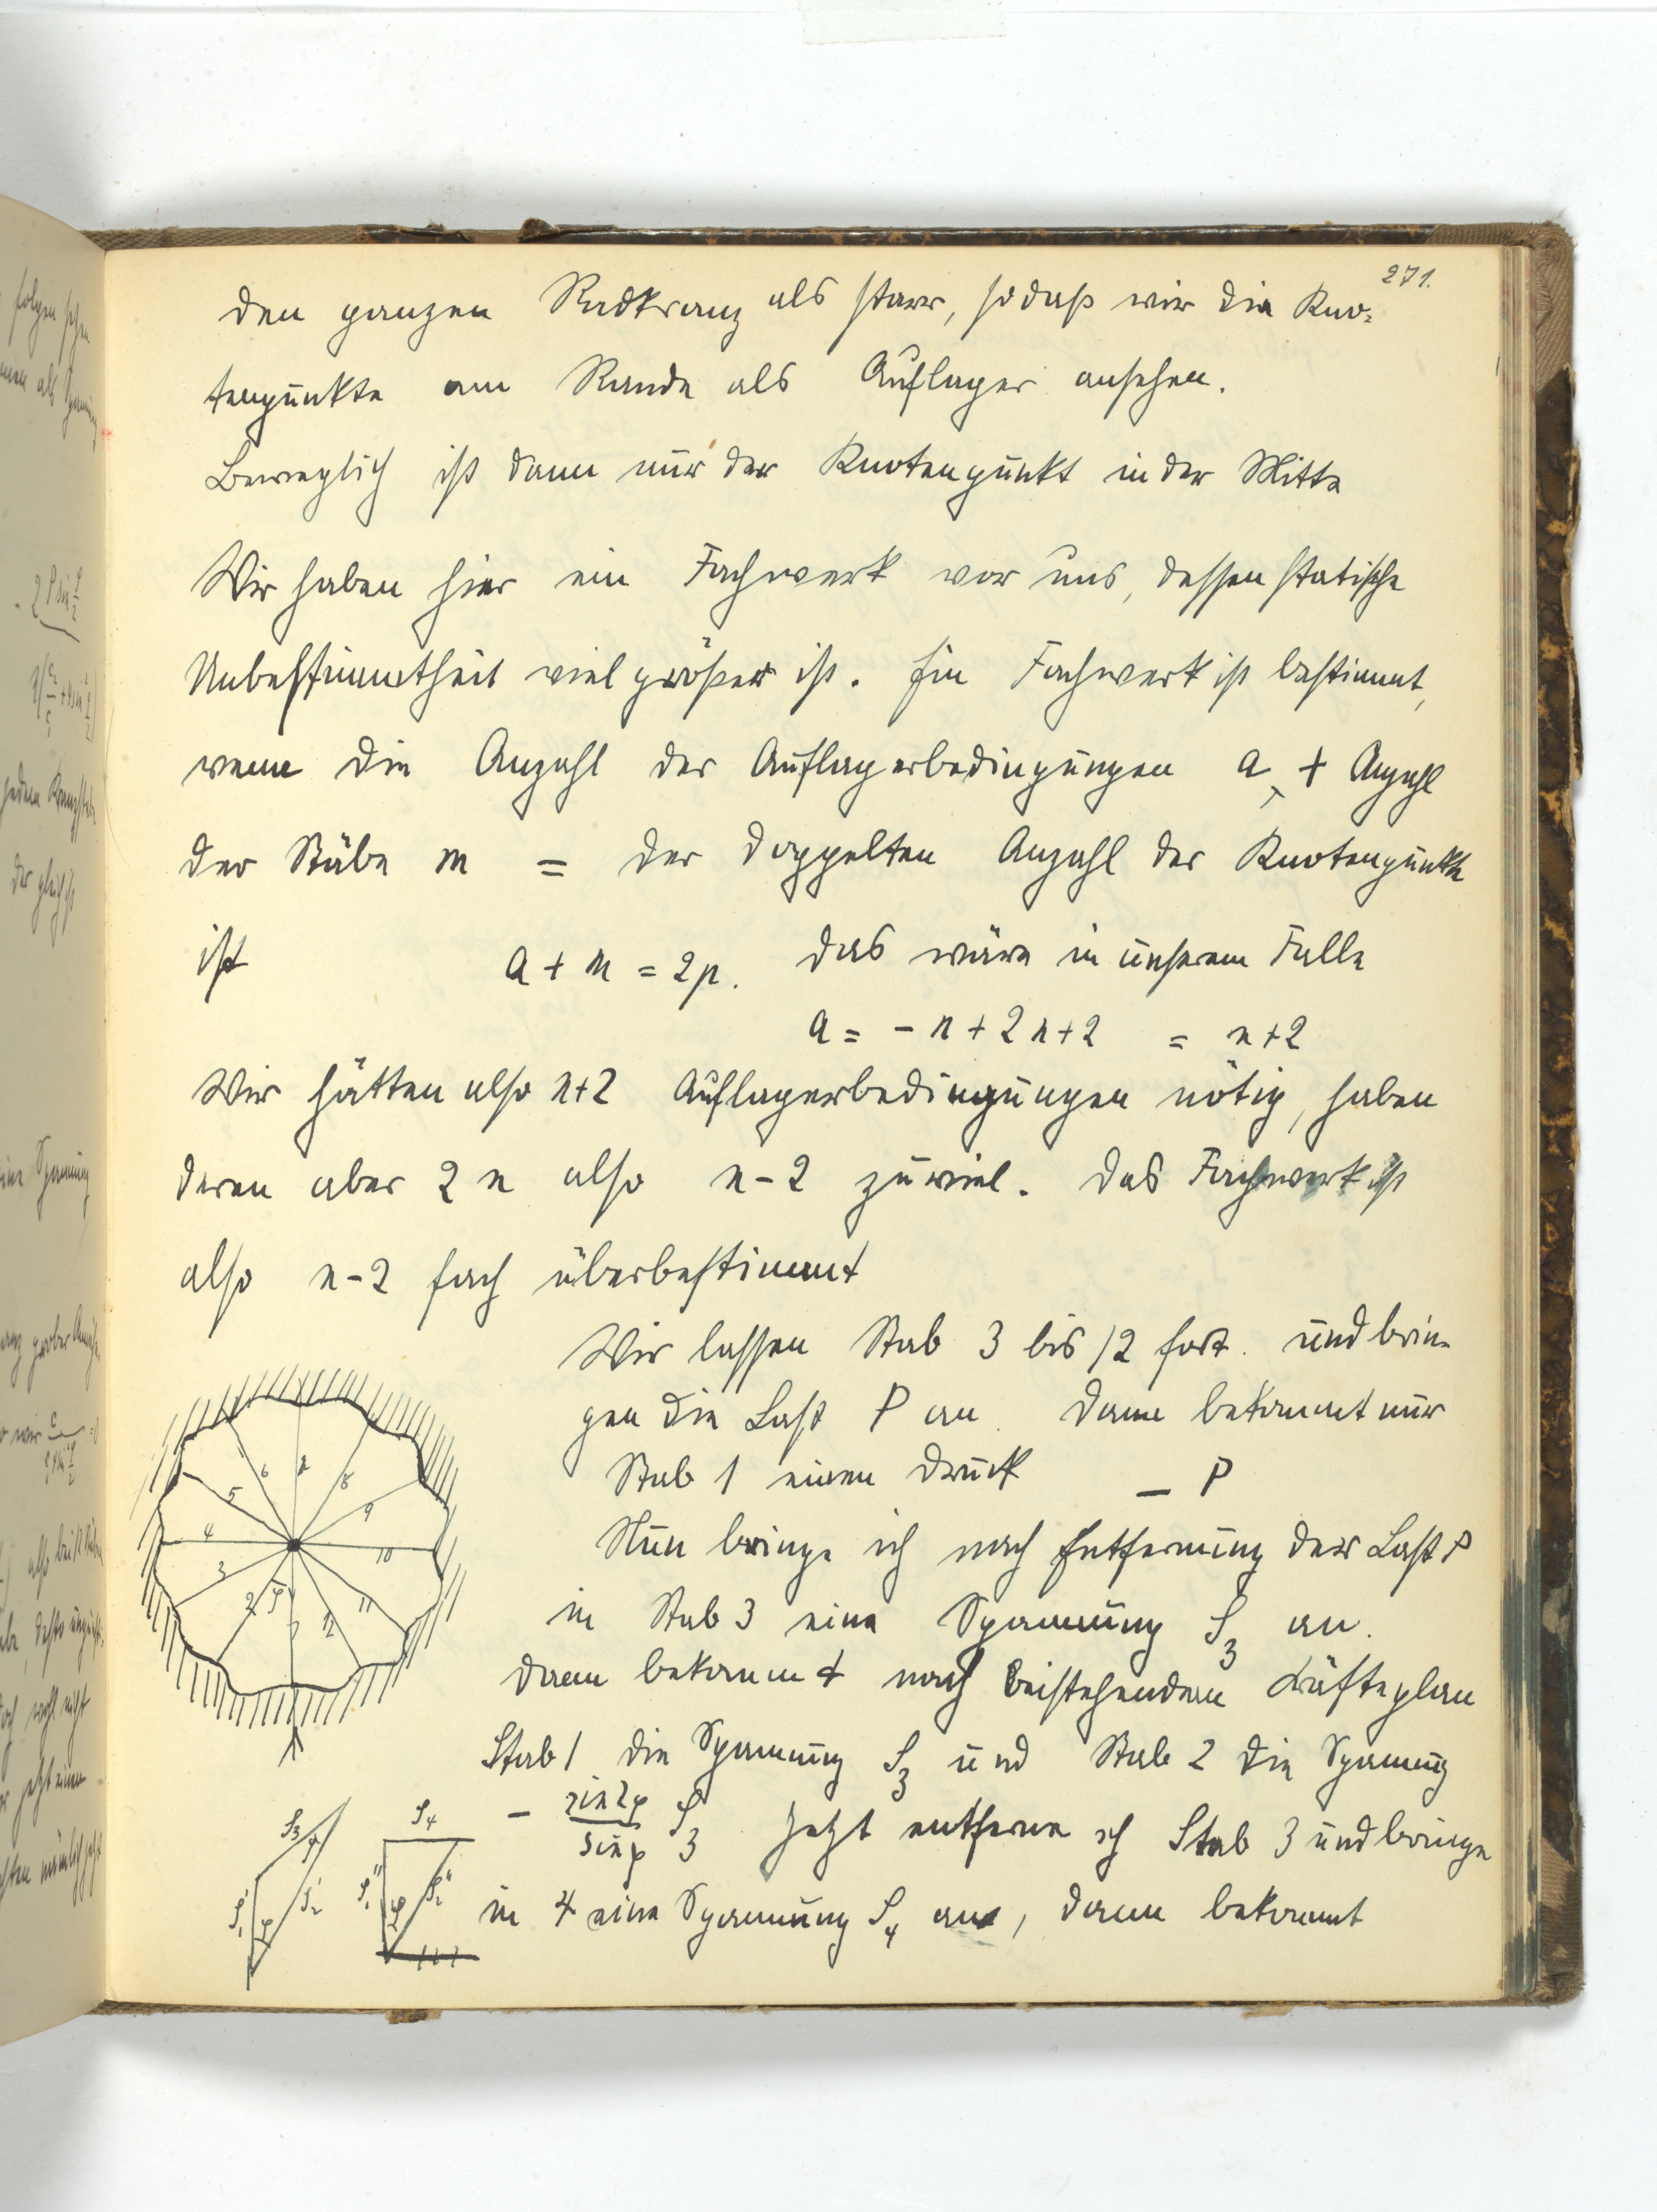 271.
den ganzen Radkranz als starr, sodaß wir die Kno-
tenpunkte am Rande als Auflager ansehen.
Beweglich ist dann nur der Knotenpunkt in der Mitte
Wir haben hier ein Fachwerk vor uns, dessen statische
Unbestimmtheit viel größer ist. Ein Fachwerk ist bestimmt,
wenn die Anzahl der Auflagerbedingungen a + Anzahl
der Stäbe m = der doppelten Anzahl der Knotenpunkte
ist a + m = 2p. Das wäre in unserem Falle
a = - n + 2n + 2 = n + 2
Wir hätten also n+2 Auflagerbedingungen nötig, haben
deren aber 2n also n-2 zuviel. Das Fachwerk ist
also n-2 fach überbestimmt
Wir lassen Stab 3 bis 12 fort. und brin-
gen die Last P an. Dann bekommt nur
Stab 1 einen Druck - P
Nun bringe ich nach Entfernung der Last P
in Stab 3 eine Spannung S3 an.
Dann bekommt nach beistehendem Kräfteplan
Stab 1 die Spannung S3 und Stab 2 die Spannung
- sin2φ/sinφ S3 Jetzt entferne ich Stab 3 und bringe
in 4 eine Spannung S4 an, dann bekommt
6 8
5 9
4 10
3 11
2 φ 1 12
S3 S4
S1' S2' S1'' S2''
φ φ